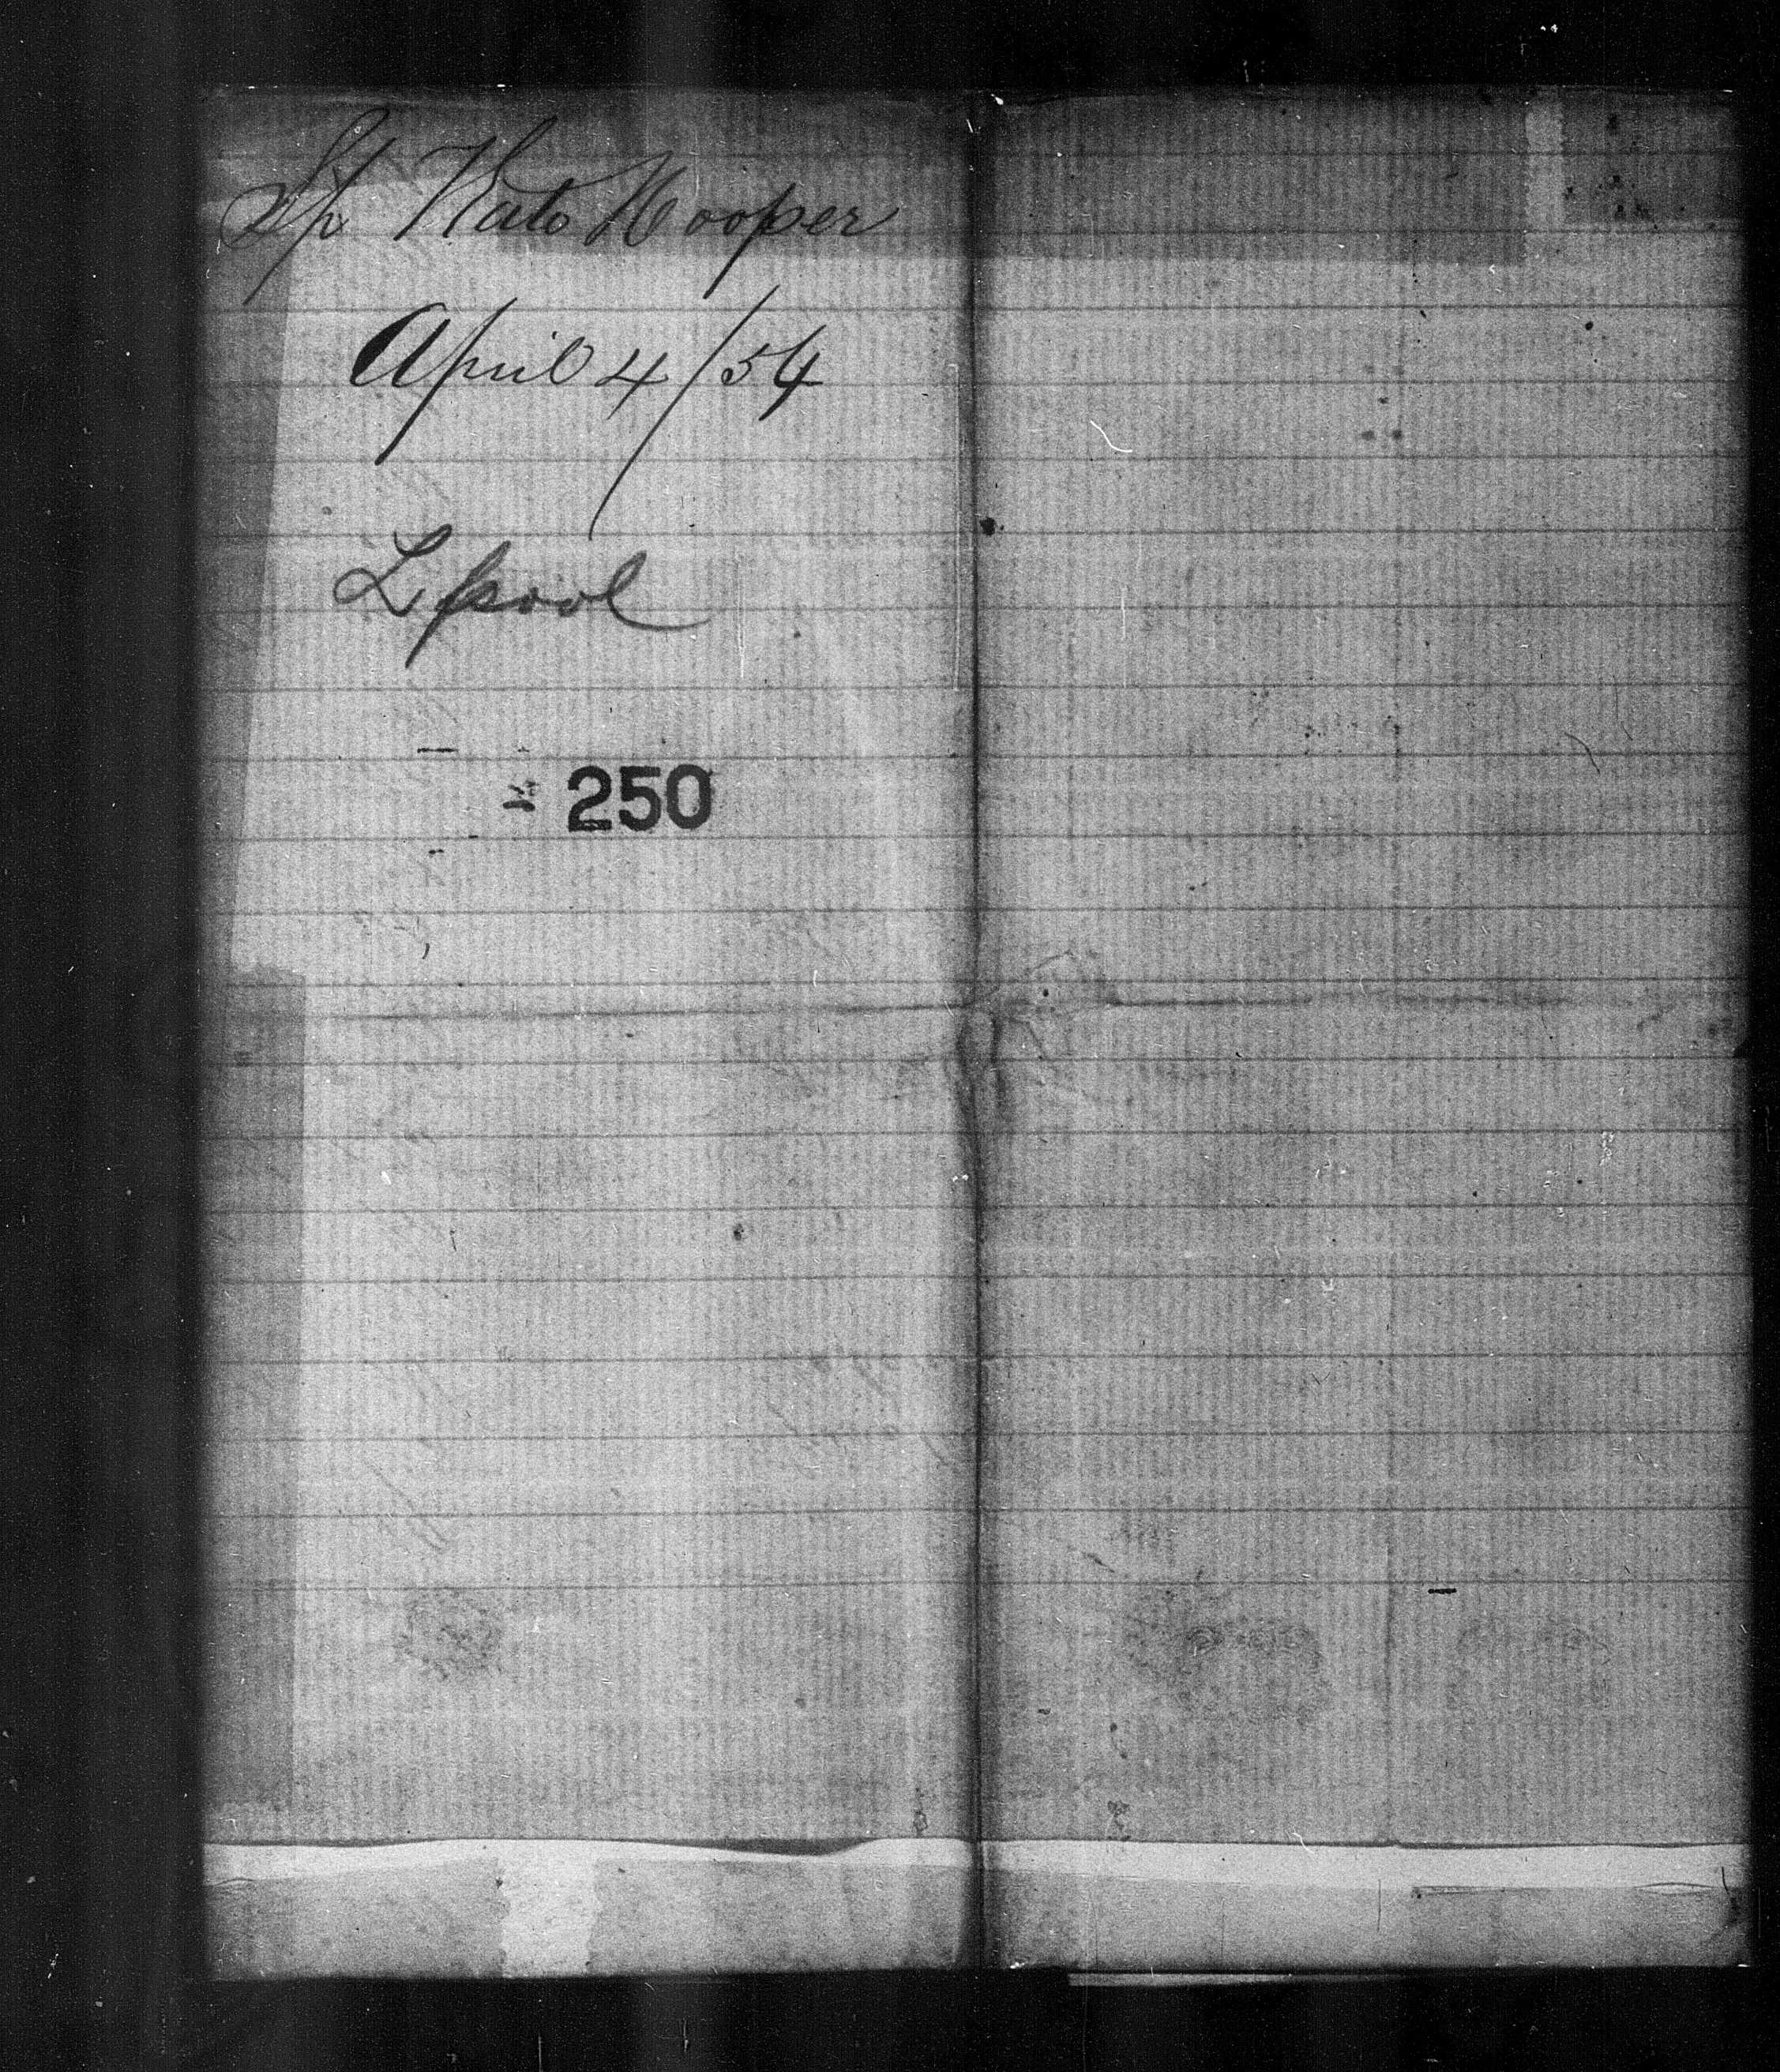 Sp Kate Hooper
April 4/54
Lpool
250